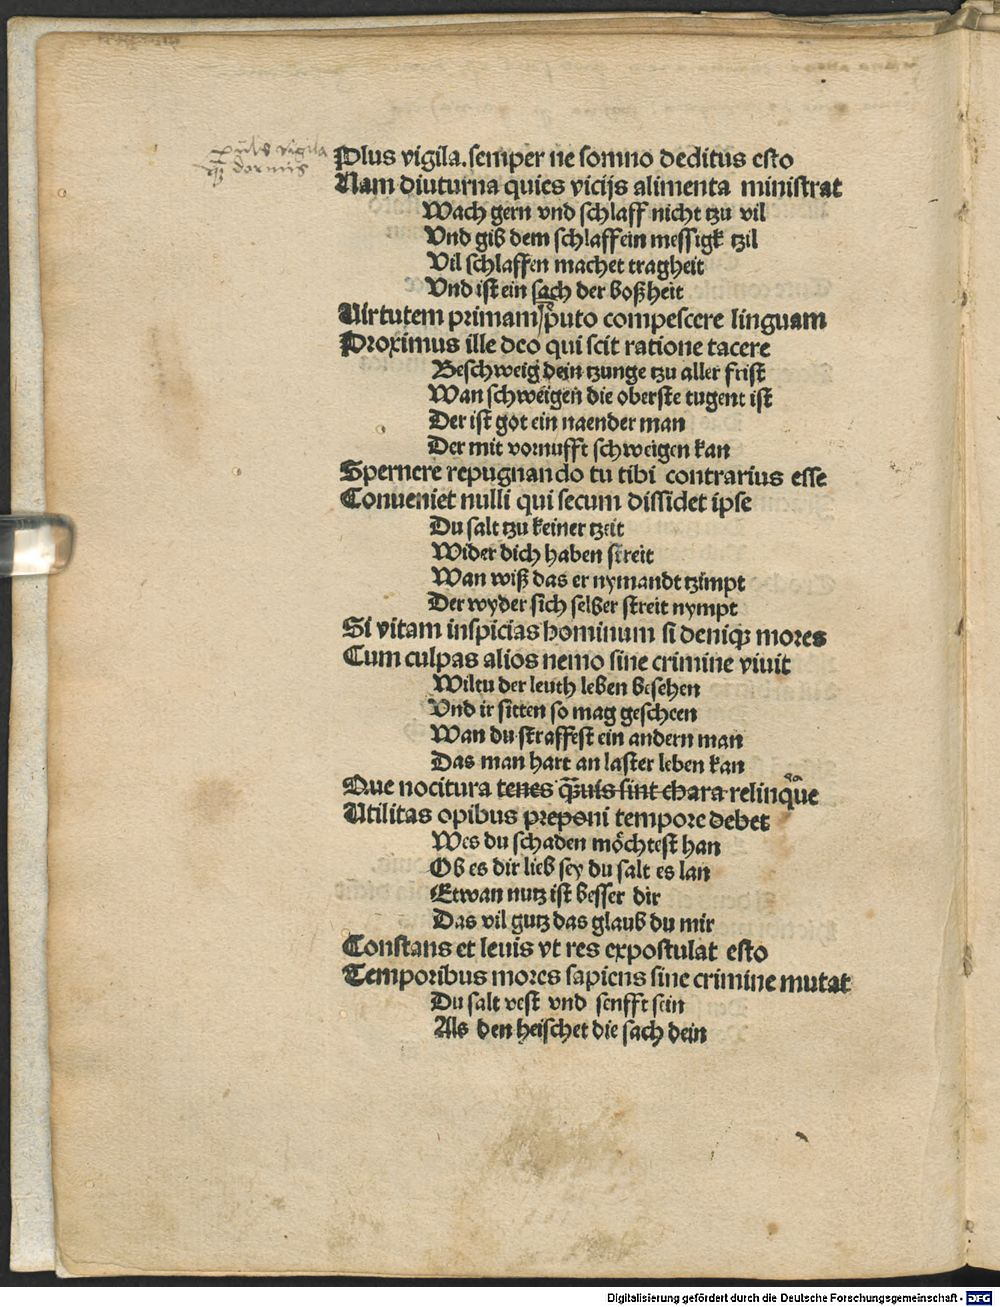 plus vigila
dormis
Plus vigila. semper ne somno deditus esto
Nam diuturna quies vicijs alimenta ministrat
Wach gern vnd schlaff nicht tzu vil
Vnd gib dem schlaffein messigk tzil
Vil schlaffen machet tragheit
Vnd ist ein sach der boßheit
Uirtutem primam puto compescere linguam
Proximus ille deo qui scit ratione tacere
Beschweig dein tzunge tzu aller frist
Wan schweigen die oberste tugent ist
Der ist got ein naender man
Der mit vornufft schweigen kan
Spernere repugnando tu tibi contrarius esse
Conueniet nulli qui secum dissidet ipse
Du salt tzu keiner tzeit
Wider dich haben streit
Wan wiß das er nymandt tzimpt
Der wyder sich selber streit nympt
Si vitam inspicias hominum si deniqꝫ mores
Cum culpas alios nemo sine crimine viuit
Wiltu der leuth leben besehen
Vnd ir sitten so mag gescheen
Wan du straffest ein andern man
Das man hart an laster leben kan
Que nocitura tenes q̄uis sint chara relinque
Utilitas opibus preponi tempore debet
Wes du schaden möchtest han
Ob es dir lieb sey du salt es lan
Etwan nutz ist besser dir
Das vil gutz das glaub du mir
Constans et leuis vt res expostulat esto
Temporibus mores sapiens sine crimine mutat
Du salt vest vnd senfft sein
Als den heischet die sach dein
Digitalisierung gefördert durch die Deutsche Forschungsgemeinschaft - DFG